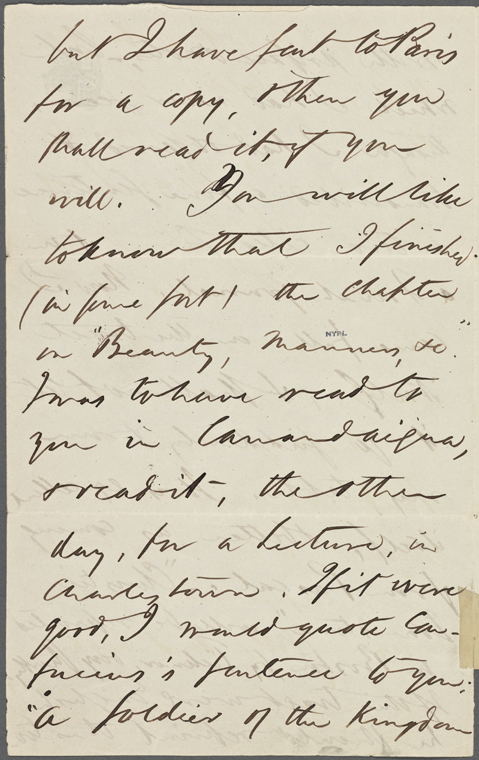 but I have sent to Paris
for a copy, & then you
shall read it, if you
will. You will like
to know that I finished
(in some sort) the chapter
NYPL
on "Beauty, Manners, &c."
I was to have read to
you in Canandaigua,
& read it, the other
day, for a Lecture, in
Charlestown. If it were
good, I would quote Con-
fucius's sentence to you;
"A soldier of the Kingdom